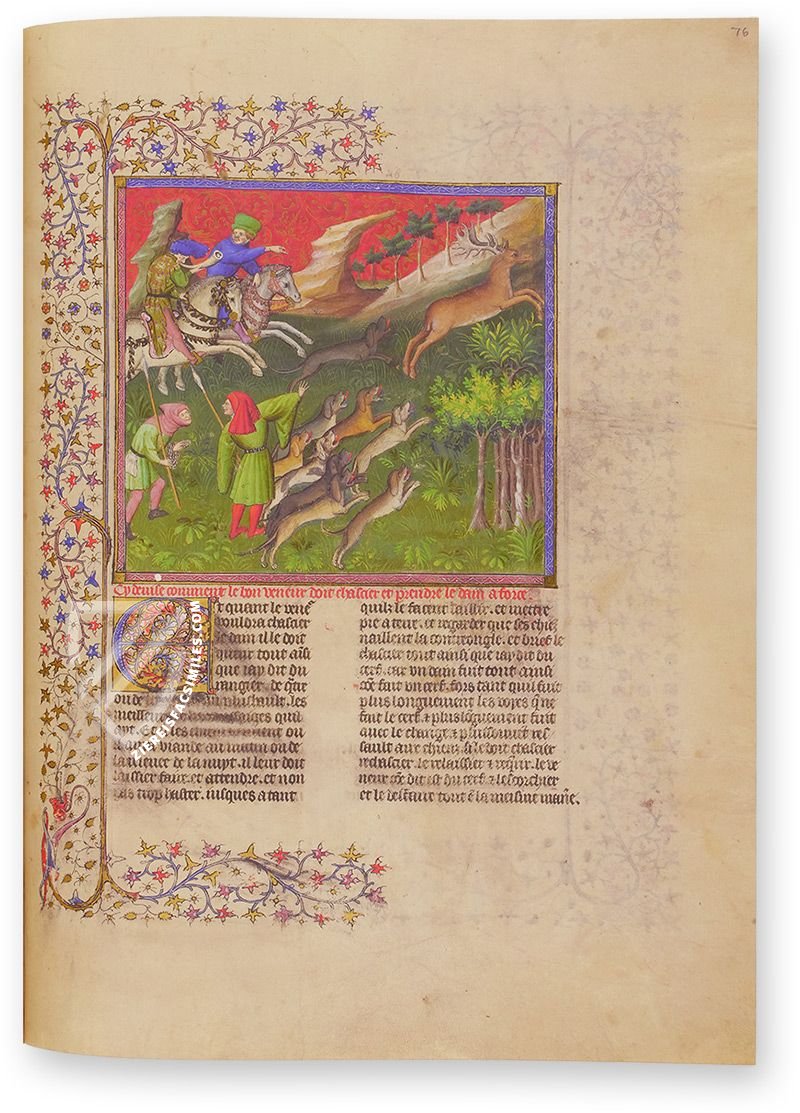 76
Cy deuise comment le bon veneur doit chascier et prendre le dain a force.
Et quant le vene
vouldra chascier
le dain il le doit
querir tout aisi
que iay dit du
rangier. de
ou de
meilleur quil
ou
viande au matin ou de
la uience de la nuyt. il leur doit
laissier faire et attendre. et non
pas trop haster. iusques a tant
quilz le facent saillir. et mettre
pie a terre. et regarder que ses chiés
naillent la contreongle. et briefs le
chascier tout ainsi que iay dit du
cerf. car vn dain fuit tout ainsi
cõe fait vn cerf. fors tant quil fuit
plus longuement les voyes que
fait le cerf. et plus longuement fuit
auec le change et plus souuent res
sault aux chiens. si le doit chascier
rechascier. le relaissier et requir. le ve
neur cõe dit est du cerf. et lescorchier
et le deffaire tout e la mesme maniere.
ZIEREISFACSIMILES.COM